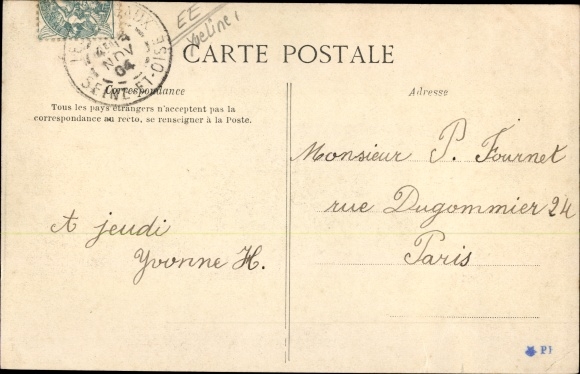 EE
Yveline
CARTE POSTALE
NOV
04
SEINE-ET-OISE
Correspondance
Tous les pays étrangers n'acceptent pas la
correspondance au recto, se renseigner à la Poste.
A jeudi
Yvonne H.
Adresse
Monsieur P. Fournet
rue Dugommier 24
Paris